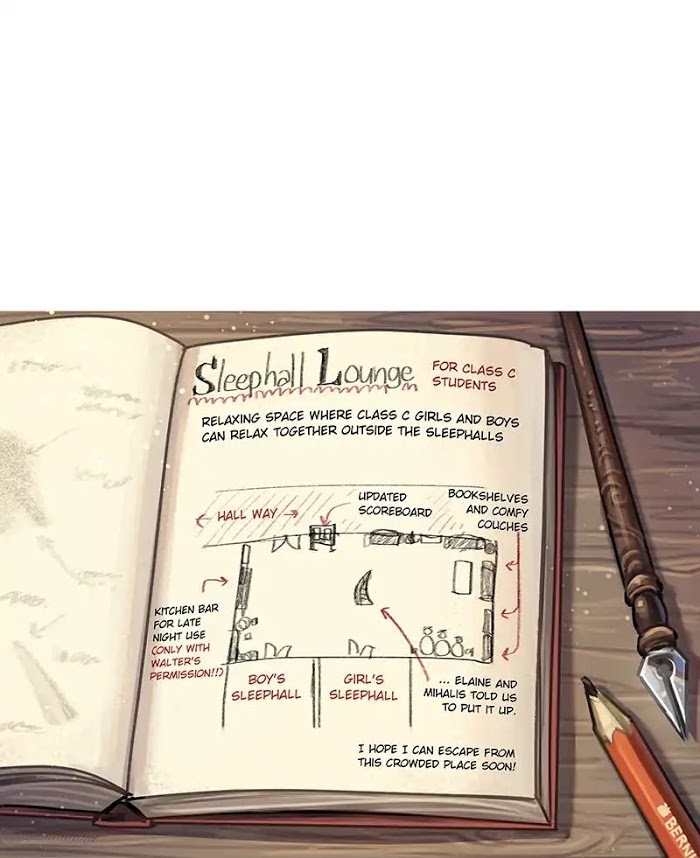 Sleephall Lounge
FOR CLASS C
STUDENTS
RELAXING SPACE WHERE CLASS C GIRLS AND BOYS
CAN RELAX TOGETHER OUTSIDE THE SLEEPHALLS
HALL WAY
UPDATED
SCOREBOARD
BOOKSHELVES
AND COMFY
COUCHES
KITCHEN BAR
FOR LATE
NIGHT USE
(ONLY WITH
WALTER'S
PERMISSION!!)
BOY'S
SLEEPHALL
GIRL'S
SLEEPHALL
... ELAINE AND
MIHALIS TOLD US
TO PUT IT UP.
I HOPE I CAN ESCAPE FROM
THIS CROWDED PLACE SOON!
BERN